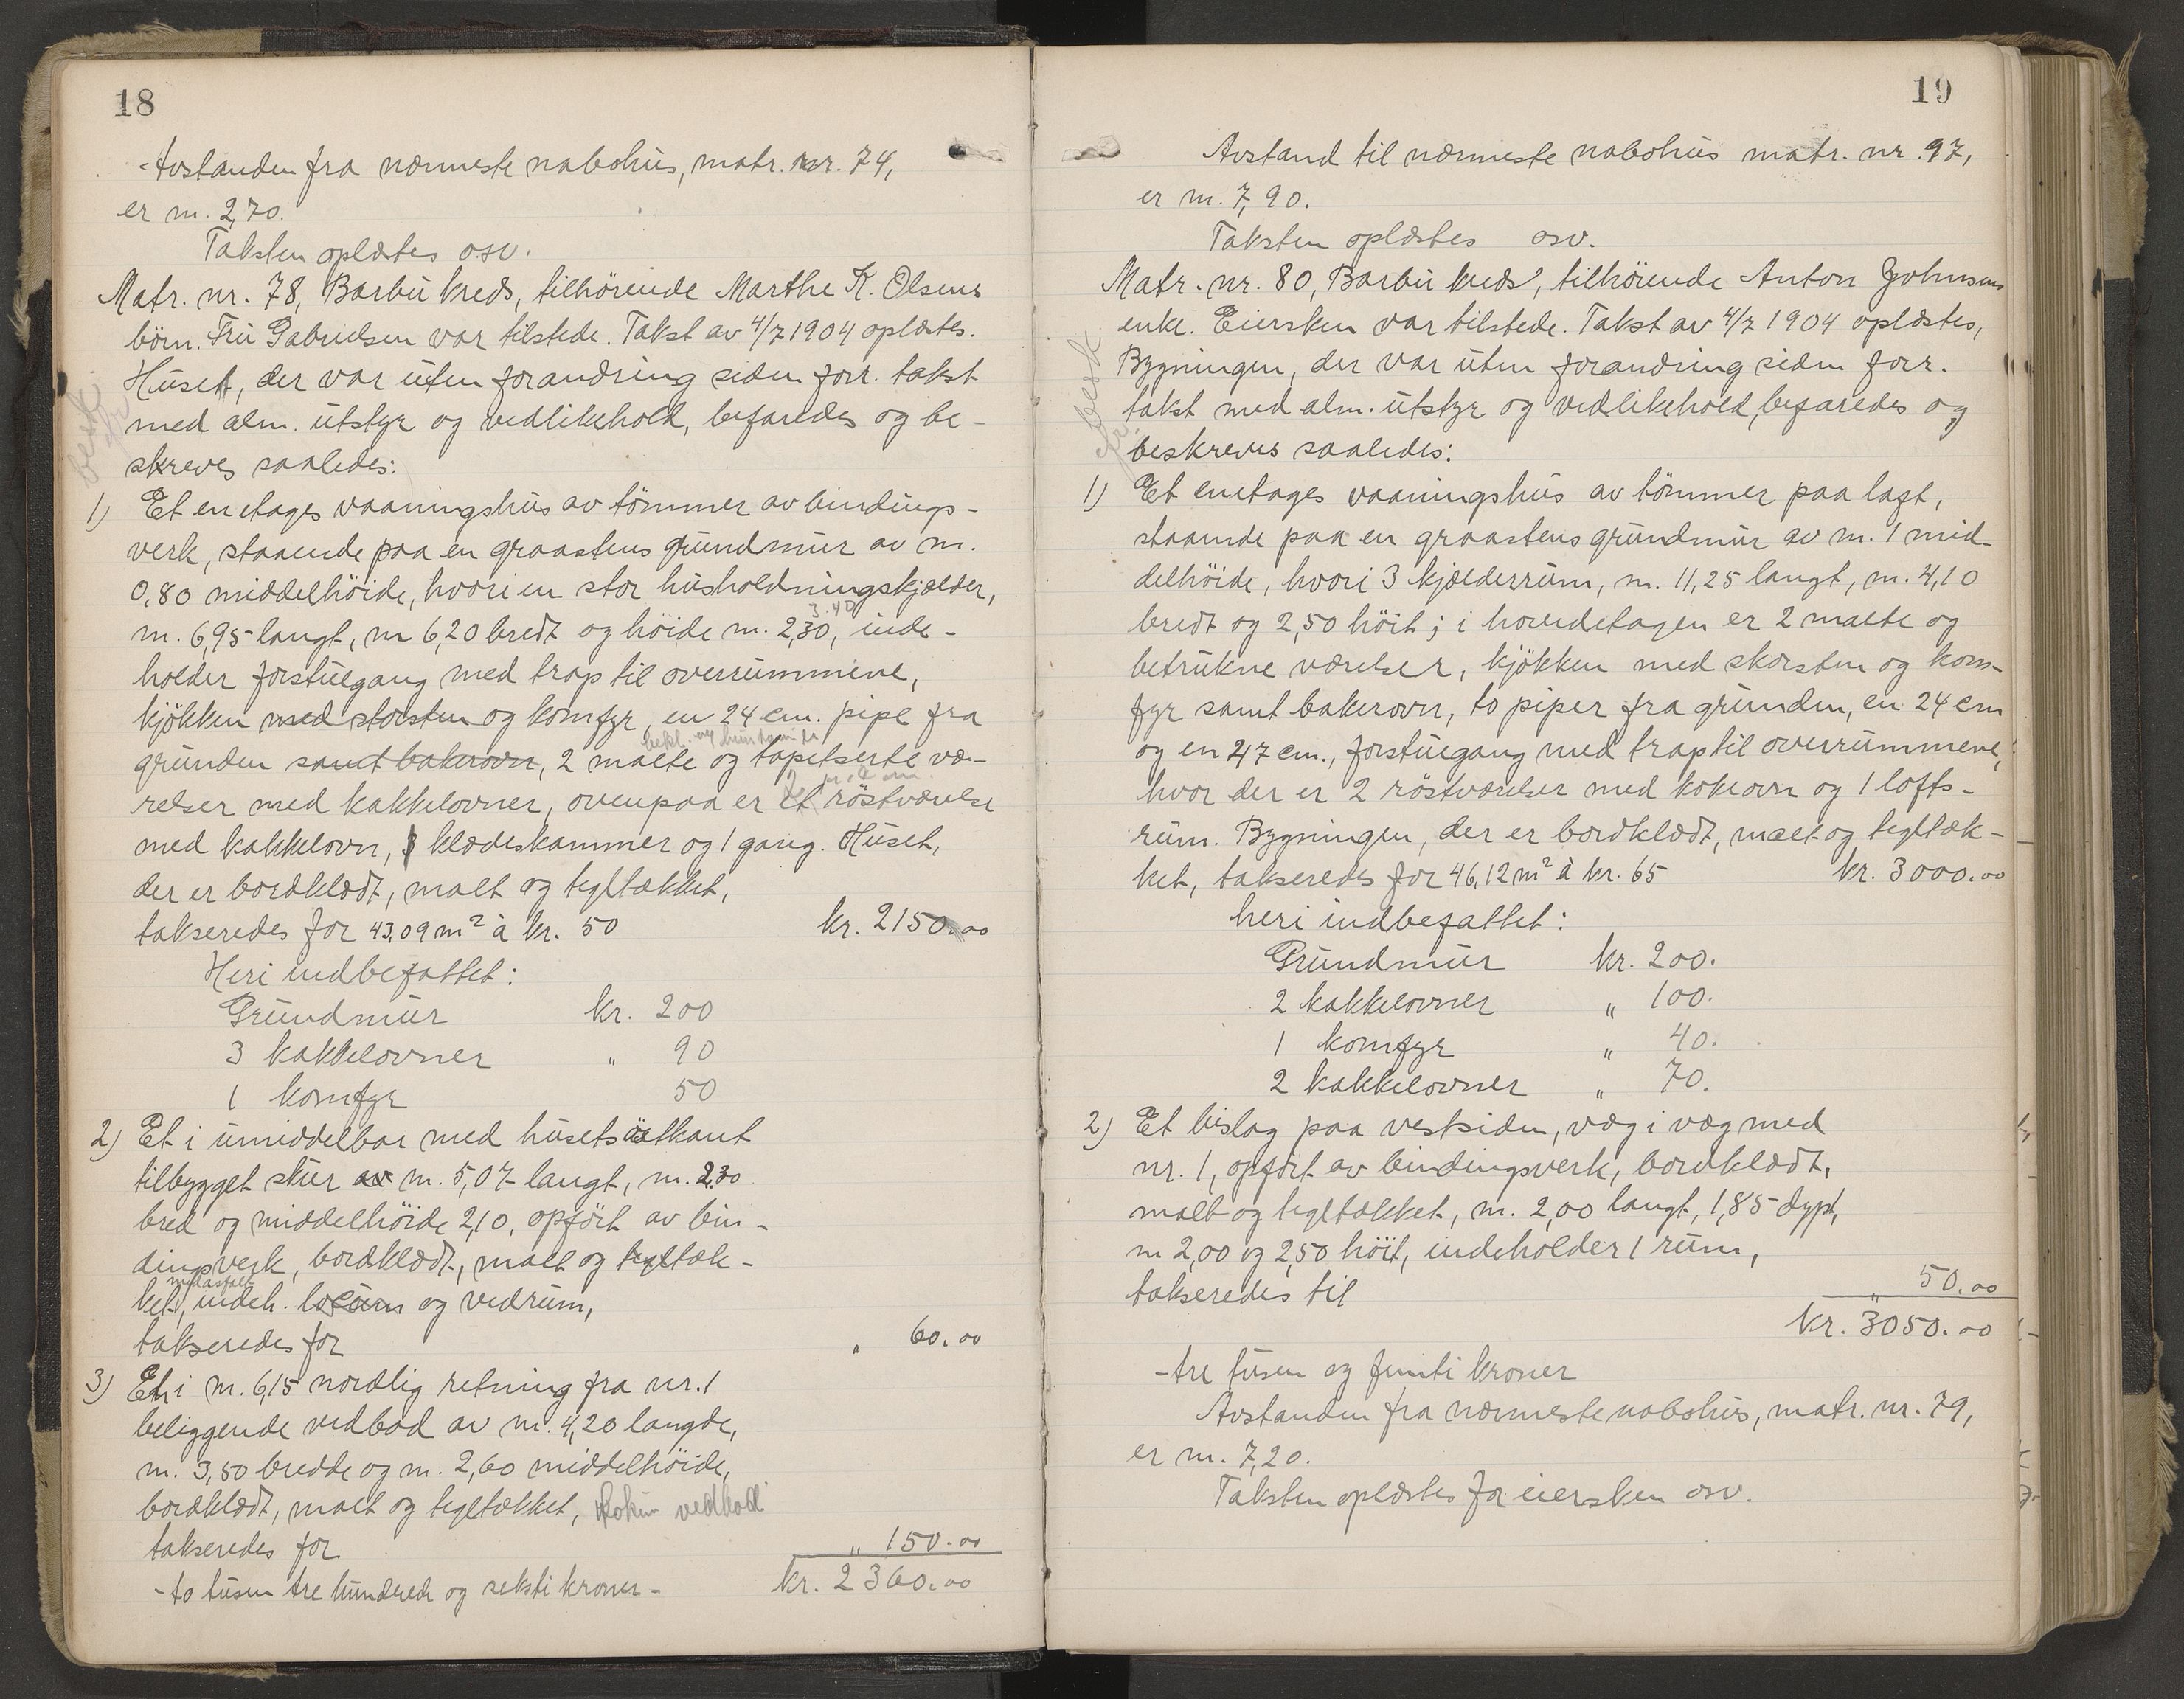 18
Avstanden fra nærmeste nabohus, matr. nr. 74,
er m. 2,70.
Taksten oplæstes osv.
Matr. nr. 78, Barbu kreds, tilhörende Marthe K. Olsens
börn. Fru Gabrielsen var tilstede. Takst av 4/7 1904 oplæstes.
Huset, der var uten forandring siden forr. takst
med alm. utstyr og vedlikehold, befaredes og be-
skreves saaledes:
1) Et enetages vaaningshus av tömmer av bindings-
verk, staaende paa en graastens grundmur av m.
0,80 middelhöide, hvori en stor husholdningskjælder,
3.40
m. 6,95 langt, m 6,20 bredt og höide m. 2,30, inde-
holder forstuegang med trap til overrummene,
kjökken med skorsten og komfyr, en 24 cm. pipe fra
grunden samt bakerovn, 2 malte og tapetserte væ-
relser med kakkelovner, ovenpaa er et röstværelse
med kakkelovn, klædeskammer og 1 gang. Huset,
der er bordklædt, malt og tegltækket,
takseredes for 43,09 m² à kr. 50 kr. 2150.00
Heri indbefattet:
Grundmur kr. 200
3 kakkelovner " 90
1 komfyr 50
2) Et i umiddelbar med husets östkant
tilbygget skur av m. 5,07 langt, m. 2.30
bred og middelhöide 2,10, opfört av bin-
dingsverk, bordklædt, malt og tegltæk-
med asfalt
ket, indeh. locum og vedrum,
takseredes for " 60.00
3) Et i m. 6,15 nordlig retning fra nr. 1
beliggende vedbod av m. 4,20 længde,
m. 3,50 bredde og m. 2,60 middelhöide,
bordklædt, malt og tegltækket, Lokum vedbod
takseredes for " 150.00
- to tusen tre hundrede og seksti kroner - kr. 2360.00
19
Avstand til nærmeste nabohus matr. nr. 97,
er m. 7,90.
Taksten oplæstes osv.
Matr. nr. 80, Barbu kreds, tilhörende Anton Johnsens
enke. Eiersken var tilstede. Takst av 4/7 1904 oplæstes,
Bygningen, der var uten forandring siden forr.
takst med alm. utstyr og vedlikehold, befaredes og
beskreves saaledes:
1) Et enetages vaaningshus av tömmer paa laft,
staaende paa en graastens grundmur av m. 1 mid-
delhöide, hvori 3 kjælderrum, m. 11,25 langt, m. 4,10
bredt og 2,50 höit; i hovedetagen er 2 malte og
betrukne værelser, kjökken med skorsten og kom-
fyr samt bakerovn, to piper fra grunden, en 24 cm
og en 47 cm., forstuegang med trap til overrummene,
hvor der er 2 röstværelser med kokeovn og 1 lofts-
rum. Bygningen, der er bordklædt, malt og tegltæk-
ket, takseredes for 46,12 m² à kr. 65 kr. 3000.00
heri indbefattet:
Grundmur kr. 200.
2 kakkelovner " 100.
1 komfyr " 40.
2 kakkelovner " 70.
2) Et bislag paa vestsiden, væg i væg med
nr. 1, opfört av bindingsverk, bordklædt,
malt og tegltækket, m. 2,00 langt, 1,85 dypt,
m 2,00 og 2,50 höit, indeholder 1 rum,
takseredes til " 50.00
kr. 3050.00
- tre tusen og femti kroner
Avstanden fra nærmeste nabohus, matr. nr. 79,
er m. 7,20.
Taksten oplæstes for eiersken osv.